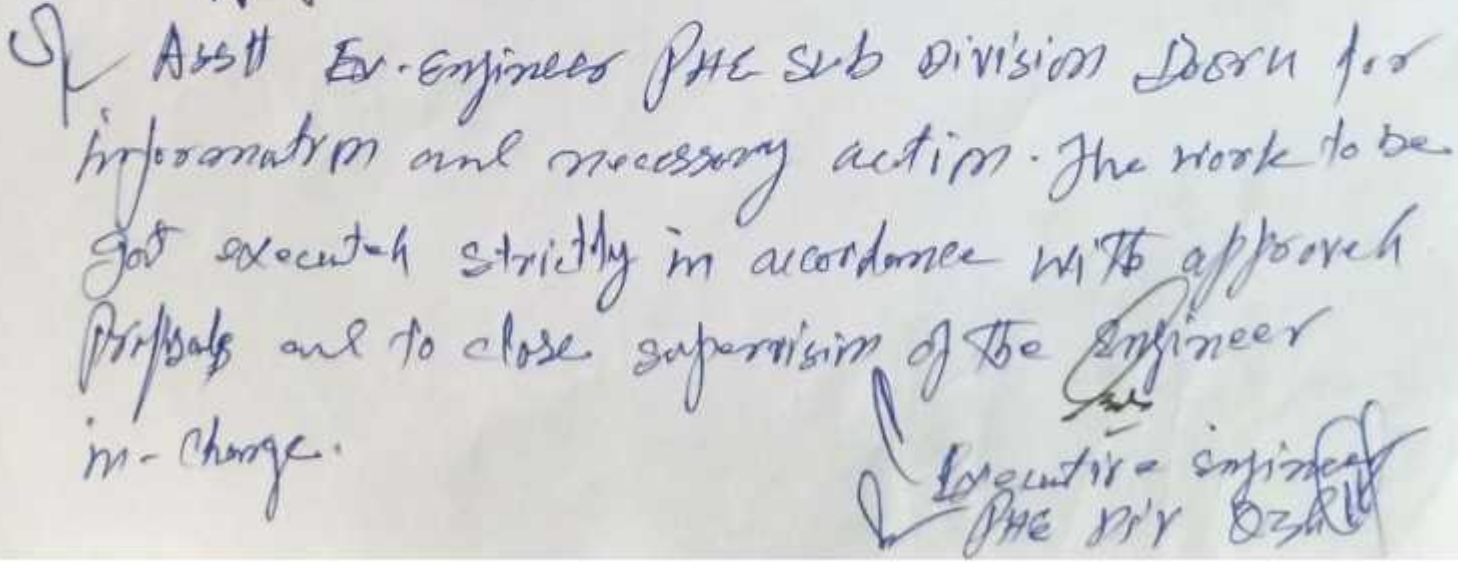 Asstt Ex. Engineer PHE Sub Division Dooru for
information and necessary action. The work to be
got executed strictly in accordance with approved
Proposals and to close supervision of the Engineer
in-charge.
Executive Engineer
PHE Div